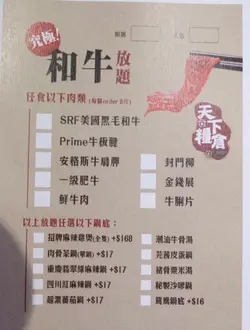 究極!
和牛
放題
任食以下肉類 (每個order 8件)
天下糧倉
SRF美國黑毛和牛
Prime牛板腱
安格斯牛肩胛
封門柳
一級肥牛
金錢展
鮮牛肉
牛脷片
以上放題任選以下鍋底：
招牌麻辣雞煲(全隻) +$168
潮油牛骨湯
肉骨茶鍋(單鍋) +$17
芫茜皮蛋鍋
重慶翡翠麻辣鍋 +$17
豬骨粟米湯
四川紅麻辣鍋 +$17
秘製沙嗲鍋
超濃蕃茄鍋 +$17
鴛鴦鍋底 +$16